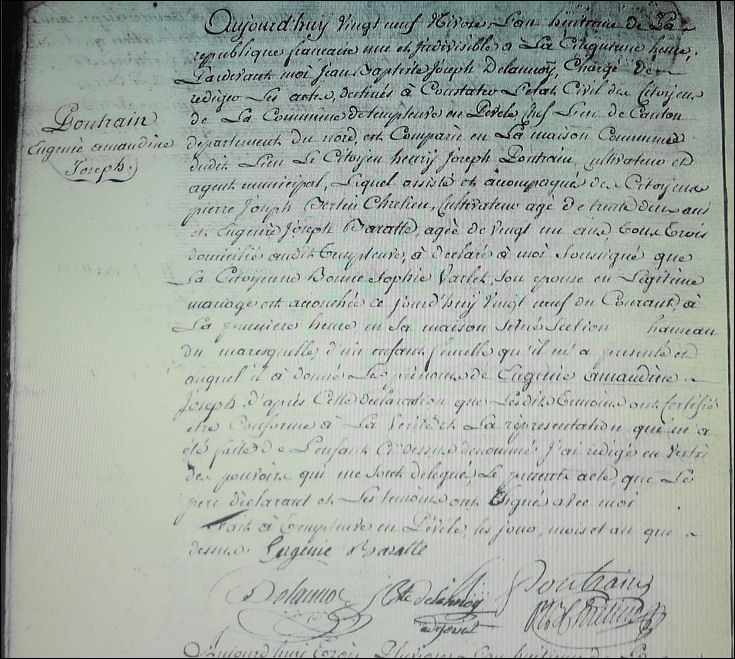 Aujourd'huy vingt neuf Nivose L'an huitieme de La
republique francaise une et Indivisible à La Cinquieme heure,
Pardevant moi Jean Baptiste Joseph Delannoÿ, Chargé de
rediger Les actes, destinés à Constater L'etat Civil des Citoyens
de La Commune de templeuve en Pevele, Chef Lieu de Canton
département du nord, est Comparu en La maison Commune
dudit Lieu Le Citoyen henry Joseph Poutrain, Cultivateur et
agent municipal, Lequel assisté et accompagné des Citoyens
pierre Joseph Bertin Chretien, Cultivateur agé de trente deux ans
et Eugenie Joseph Baratte, agée de vingt un ans, tous trois
domicilié audit templeuve, à declaré à moi Soussigné que
La Citoyenne Bonne Sophie Varlet, son epouse en Légitime
mariage est accouchée ce jourd'huy vingt neuf du Courant, à
La premiere heure en Sa maison Scituée Section hameau
du maresquelle, d'un enfant femelle qu'il m'a presenté et
auquel il à donné Les prénoms de Eugenie amandine
Joseph, d'aprés Cette declaration que Lesdits temoins ont certifié
etre Conforme à La Verité et La répresentation qui m'a
été faite de L'enfant Ci dessus denommé J'ai redigé en Vertu
des pouvoirs qui me sont delegués, Le present acte, que Le
pere déclarant et Les temoins ont Signé avec moi
fait à templeuve en Pévéle, les jour, mois et an que
dessus. Eugénie Baratte
Poutrain
Eugenie amandine
Joseph.
Delannoy Bte delannoy Poutrain
adjoint
Aujourd'huy trois Pluviose L'an huitieme de La